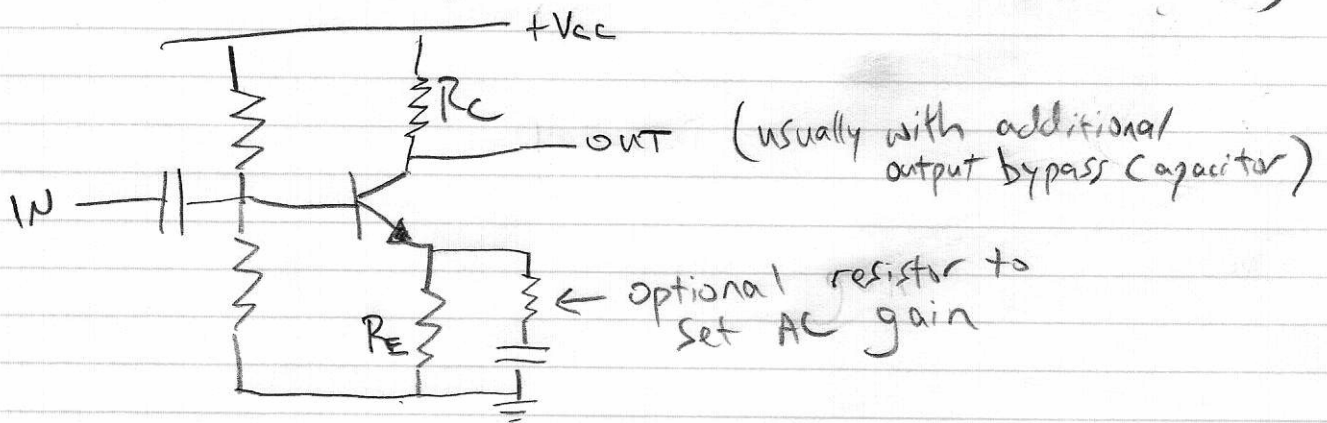 +Vcc
RC
OUT (usually with additional
output bypass Capacitor)
IN
← optional resistor to
set AC gain
RE